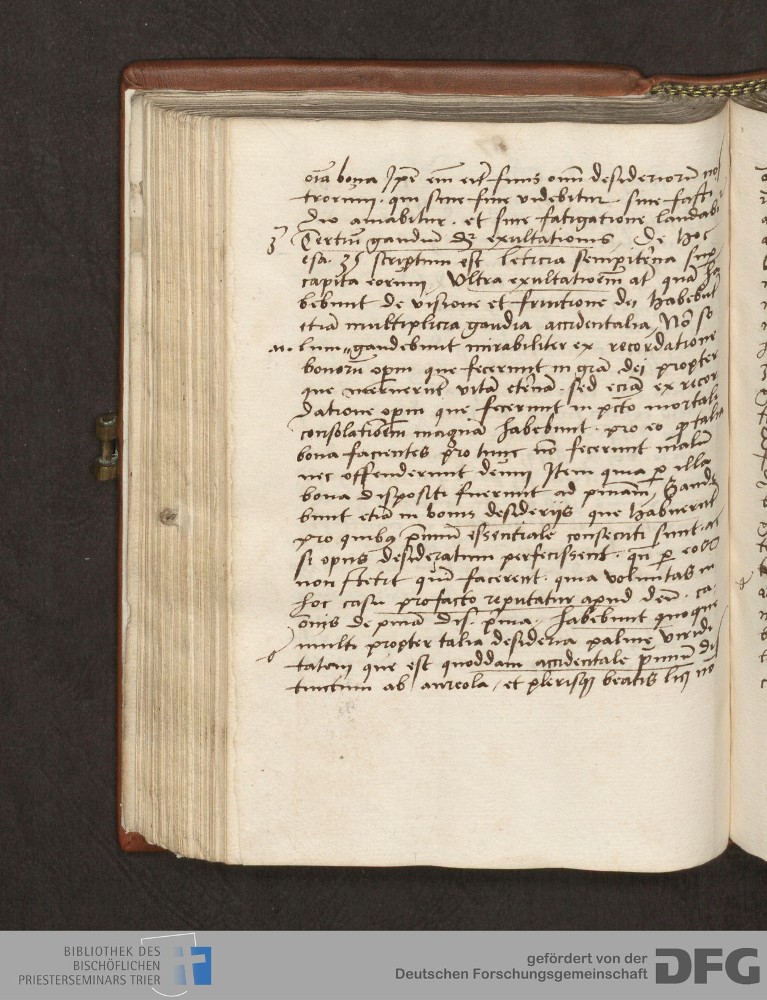 oīa bona Ipe eīn erit finis oīm desideriorū no
trorum . qui sine fine videbitur . sine fasti
dio amabitur . et sine fatigatione laudab
3 Tertiū gaudiū dr exultationis / De hoc
esa . 35 scriptum est leticia sempiterna sup
capita eorum / Ultra exultatioēm at quā ha
bebunt de visione et fruitione dei habebūt
etiā multiplicia gaudia accidentalia / Nō so
lum gaudebunt mirabiliter ex recordatione
bonorū opm que fecerunt in grā dei propter
que meruerūt vitā eternā . sed eciā ex recor
datione opm que fecerunt in pctō mortali
consolationēm magnā habebunt . pro eo q tali
bona facientes pro tunc nō fecerunt malum
nec offenderunt deum Item quia p illa
bona dispositi fuerunt ad / Gaude
bunt etiā in bonis desiderijs que habuerūt
pro quibꝫ pmiū essentiale consecuti sunt . ac
si opus desideratum perfecissent . qn p eos
non stetit quin facerent . quia voluntas in
hoc casu pro facto reputatur apud deū . ca
onis de . habebunt quoque
multi propter talia desideria palme viridi
tatem que est quoddam accidentale pmiū dis
tinctum ab aureola / et plerisqꝫ beatis licꝫ nō
BIBLIOTHEK DES
BISCHÖFLICHEN
PRIESTERSEMINARS TRIER
gefördert von der
Deutschen Forschungsgemeinschaft DFG